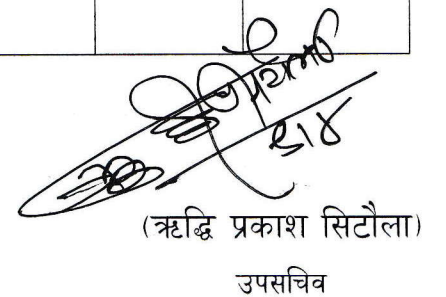 (ऋद्धि प्रकाश सिटौला)
उपसचिव